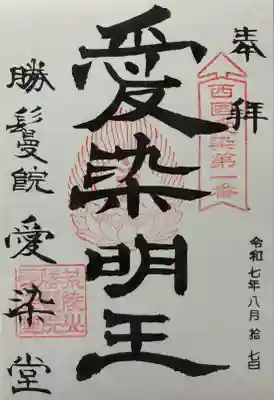 奉拝
西國愛染第一番
令和七年八月拾七日
愛染明王
勝鬘院愛染堂